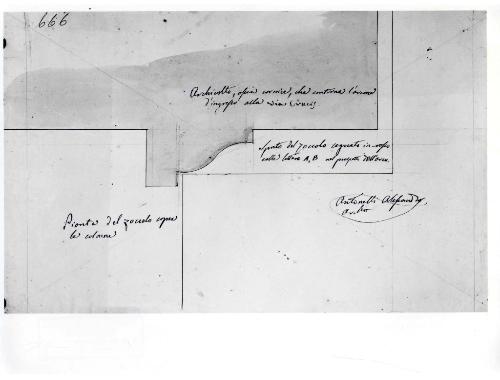 666
Archivolto, ossia cornice, che contorna l'arcone
d'ingresso alla via Crucis
Spunto del zoccolo segnato in rosso
colle lettere A, B nel progetto dell'Arco.
Antonelli Alessandro
Archto
Pianta del zoccolo sopra
le colonne